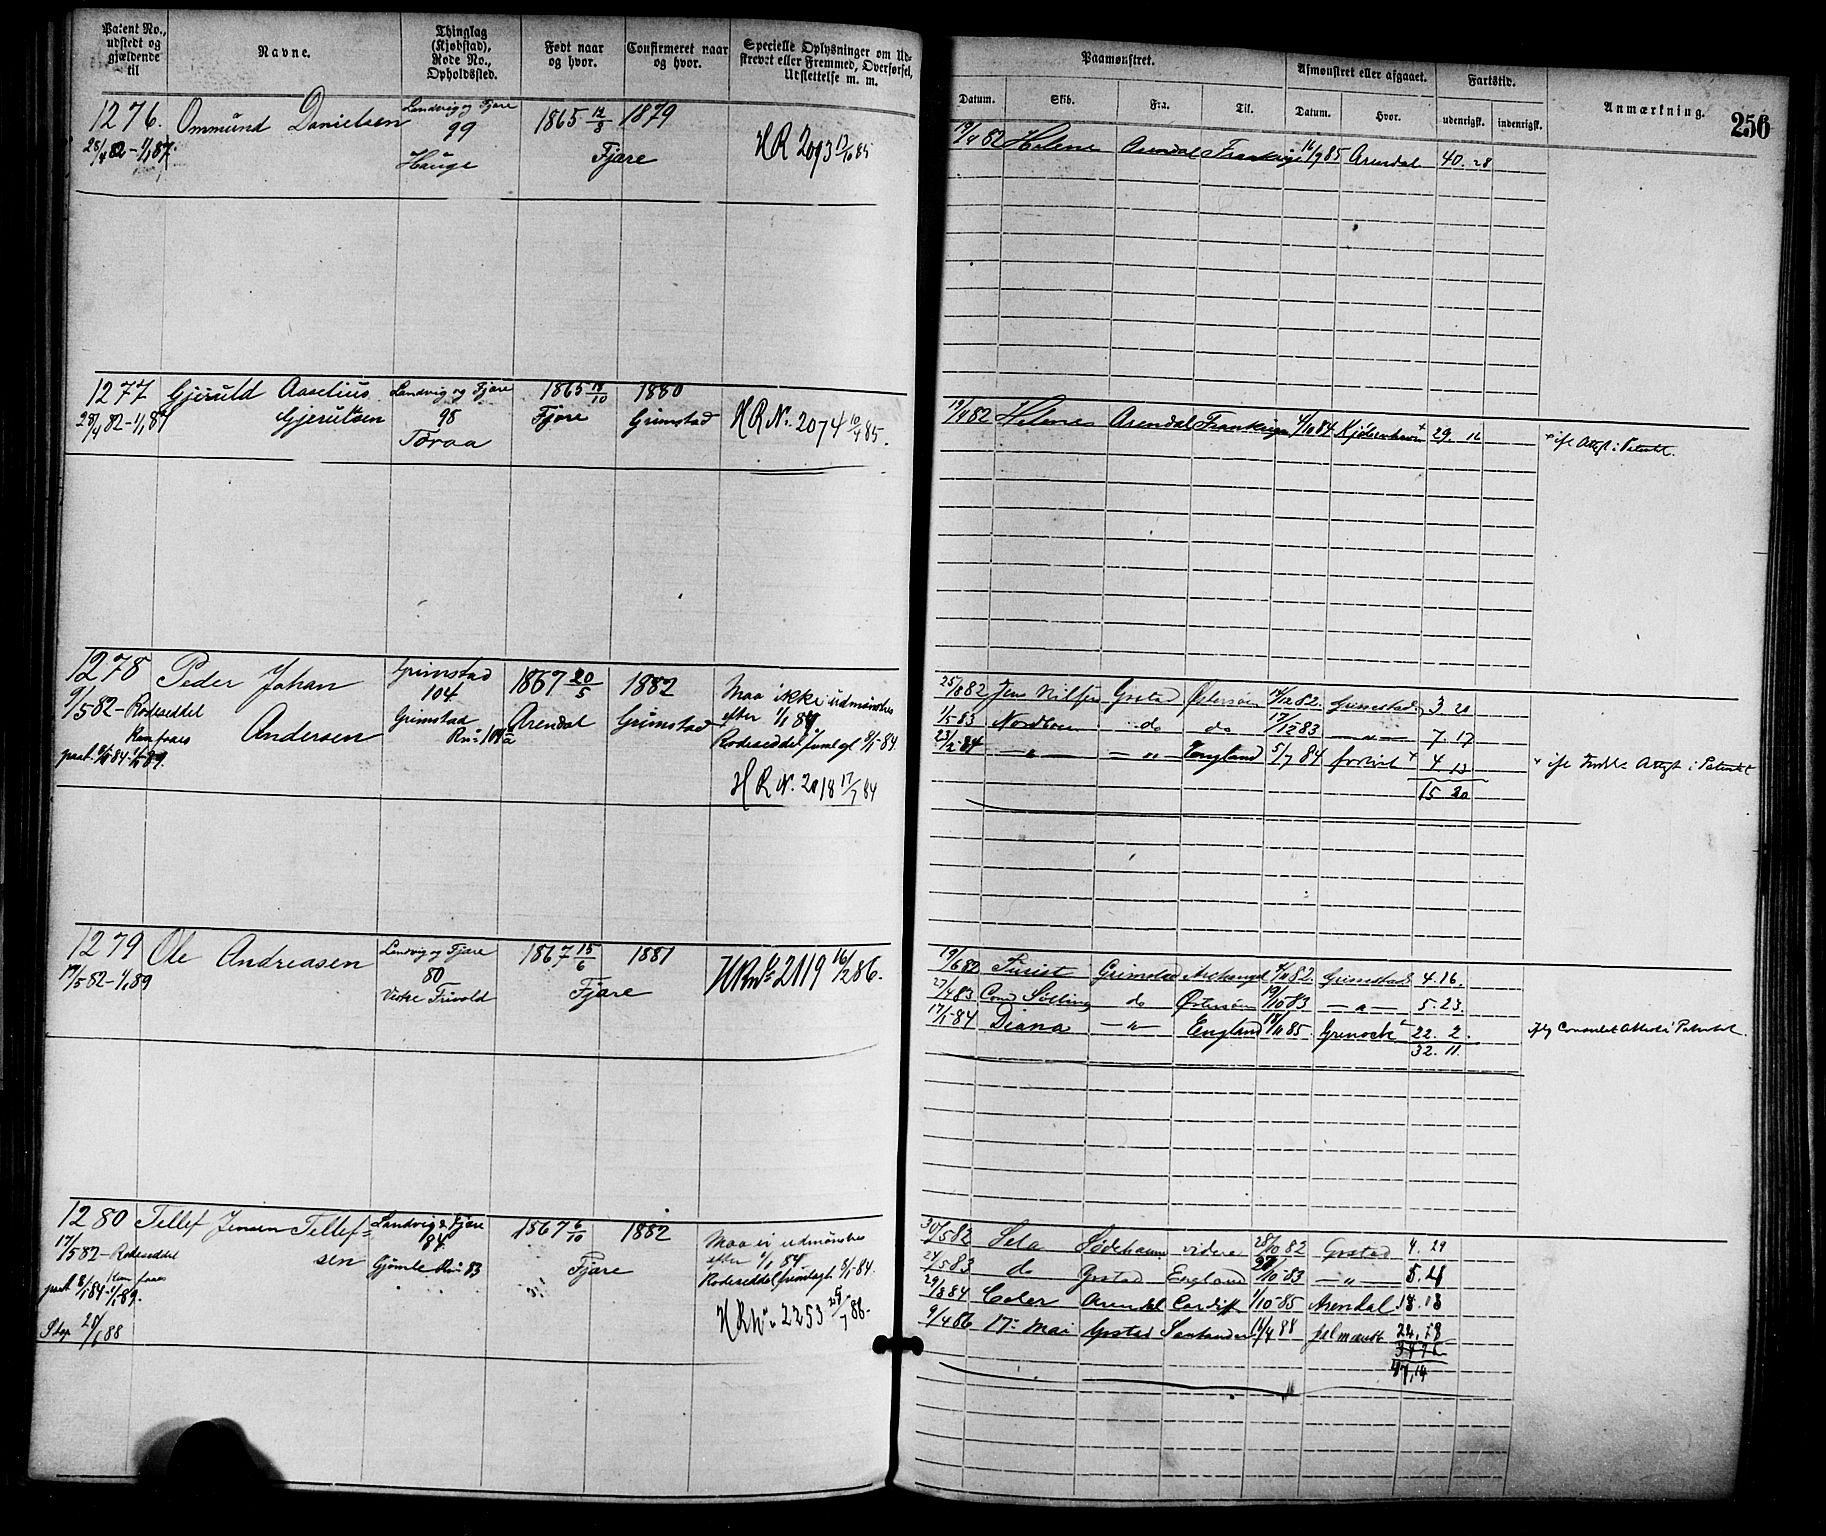 Patent No., udstedt og gjældende til
Navne.
Thinglag (Kjøbstad), Rode No., Opholdssted.
Født naar og hvor.
Confirmeret naar og hvor.
Specielle Oplysninger om Udskrevet eller Fremmed, Overførsel, Udslettelse m. m.
Paamønstret.
Datum. Skib. Fra. Til.
Afmønstret eller afgaaet.
Datum. Hvor.
Fartstid.
udenrigsk. indenrigsk.
Anmærkning.
256
1276. Ommund Danielsen Landvig og Fjære 1865 12/8 1879
25/4 82 - 1/1 87. 99 HR 2093 13/10 85
Hauge Fjære
19/4 82 Helene Arendal Frankrige 16/9 85 Arendal 40. 28
1277 Gjeruld Aaselius Landvig og Fjære 1865 18/10 1880
25/4 82 - 1/1 87 Gjerulsen 98 Fjære Grimstad HR N. 2074 10/4 85.
Toraa
19/4 82 Helene Arendal Frankrige 4/10 84 Kjøbenhavn + 29. 16
+ ifl Attest i Patentet.
1278 Peder Johan Grimstad 1867 20/5 1882 Maa ikke udmønstres
9/5 82 - Rodeseddel 104 efter 1/1 84
Kun faaes Andersen Grimstad Arendal Grimstad Rodeseddel 9/1 - 84.
paat. 9/1 84 - 1/1 89. Rn: 104a
HR N. 2018 17/7 84
25/8 82 Jens Nilsen Grstad Østersøen 14/12 82. Grimstad 3 20
1/5 - 83 Nordben do do 17/12 83 — " — 7. 17
23/2 - 84 — " — — " — England 5/7 84 + 4 13
15 20
+ ifl Attest i Patentet
1279 Ole Andreasen Landvig og Fjære 1867 15/6 1881
17/5 82 - 1/1 89 80 HR No 2119 16/2 86.
Vestre Frivold Fjære
19/6 82 Grimstad Archangel 82. Grimstad 4. 16
27/4 83 do Østersøen 19/10 83 — " — 5. 23
17/1 - 84 Diana — " — England 18/11 85. Grenock 22. 2.
32. 11.
iflg Consulet Attest i Patentet.
1280 Tellef Jensen Tellef= Landvig & Fjære 1867 6/10 1882 Maa ei udmønstres
17/5 82 - Rodeseddel sen 84 efter 1/1 84
Kun faaes Gjømle Rn: 83 Fjære Rodeseddel 8/1 - 84.
paat 8/1 84 - 1/1 89.
HR N: 2253 25/7 88.
88
30/5 82 Sela videre 28/10 82 Grstad 4. 29
24/5 83 do Grstad England 10 - 83 — " — 5. 4
29/3 84 Arendal Cardiff 1/10 - 85 Arendal 18. 13
9/4 86 17: Mai Grstad Santander 14/4 88 Falmouth
47, 14